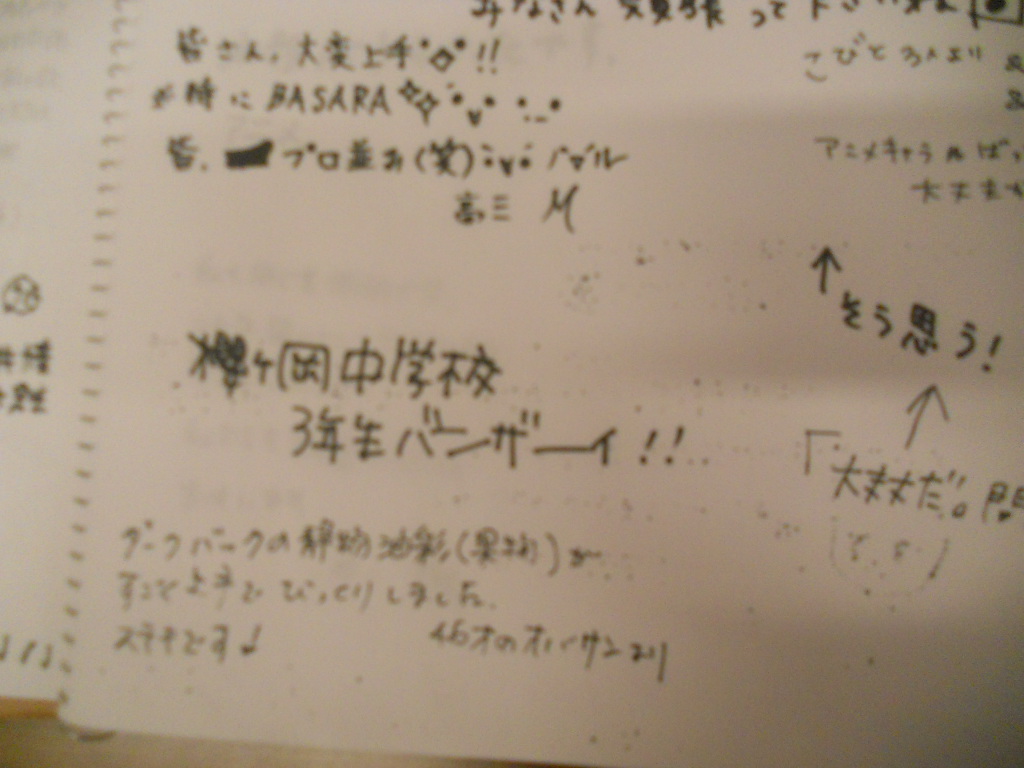 みなさん 頑張って下さいね
皆さん、大変上手!!
特に BASARA
皆、プロ並み(笑)
高三 M
こびと
アニメキャラ
↑そう思う!
櫻ヶ岡中学校
3年生バンザーイ!!
↑
「大丈夫だ。問
ダークバークの静物油彩(果物)が
すごく上手でびっくりしました。
ステキです♪
46才のオバサンより